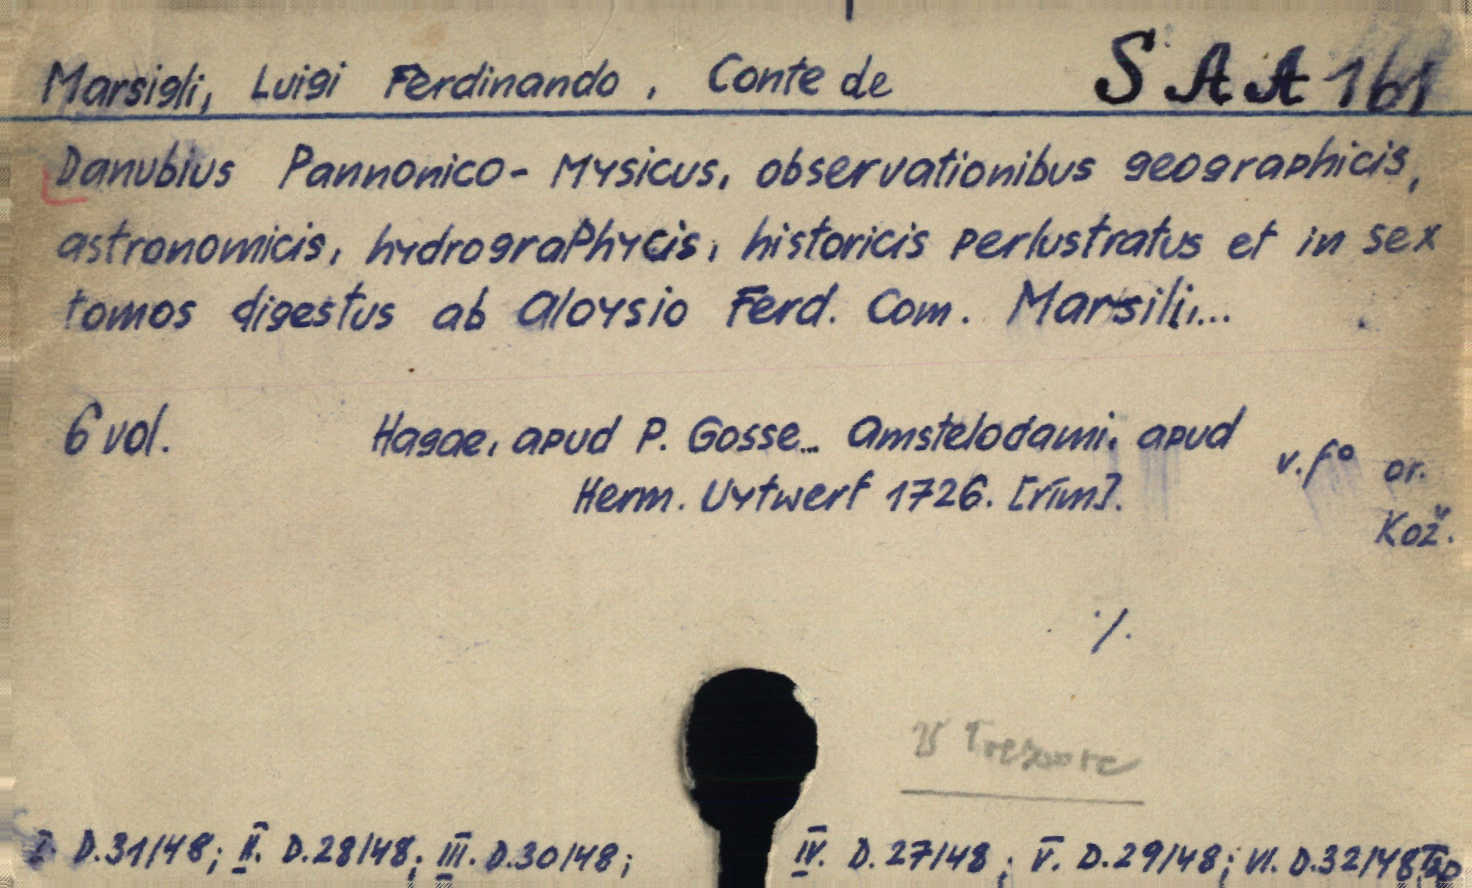 Marsigli, Luigi Ferdinando, Conte de SAA 161
Danubius Pannonico-Mysicus, observationibus geographicis,
astronomicis, hydrographycis, historicis perlustratus et in sex
tomos digestus ab Aloysio Ferd. Com. Marsili,...
6 vol. Hagae, apud P. Gosse... Amstelodami, apud
Herm. Uytwerf 1726. [rím].
v.f° or.
Kož.
./.
V Tresore
I. D.31/48; II. D.28/48; III. D.30/48; IV. D.27/48; V. D.29/48; VI. D.32/48